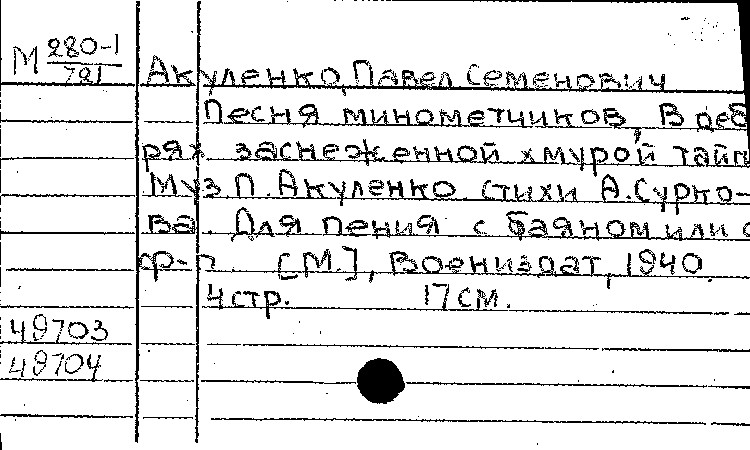 М 280-1
721
Акуленко, Павел Семенович
Песня минометчиков, В деб
рях заснеженной хмурой тайг
Муз П. Акуленко стихи А. Сурко-
ва. Для пения с баяном или с
ф-п. [М.], Воениздат, 1940.
4 стр. 17 см.
49703
49704